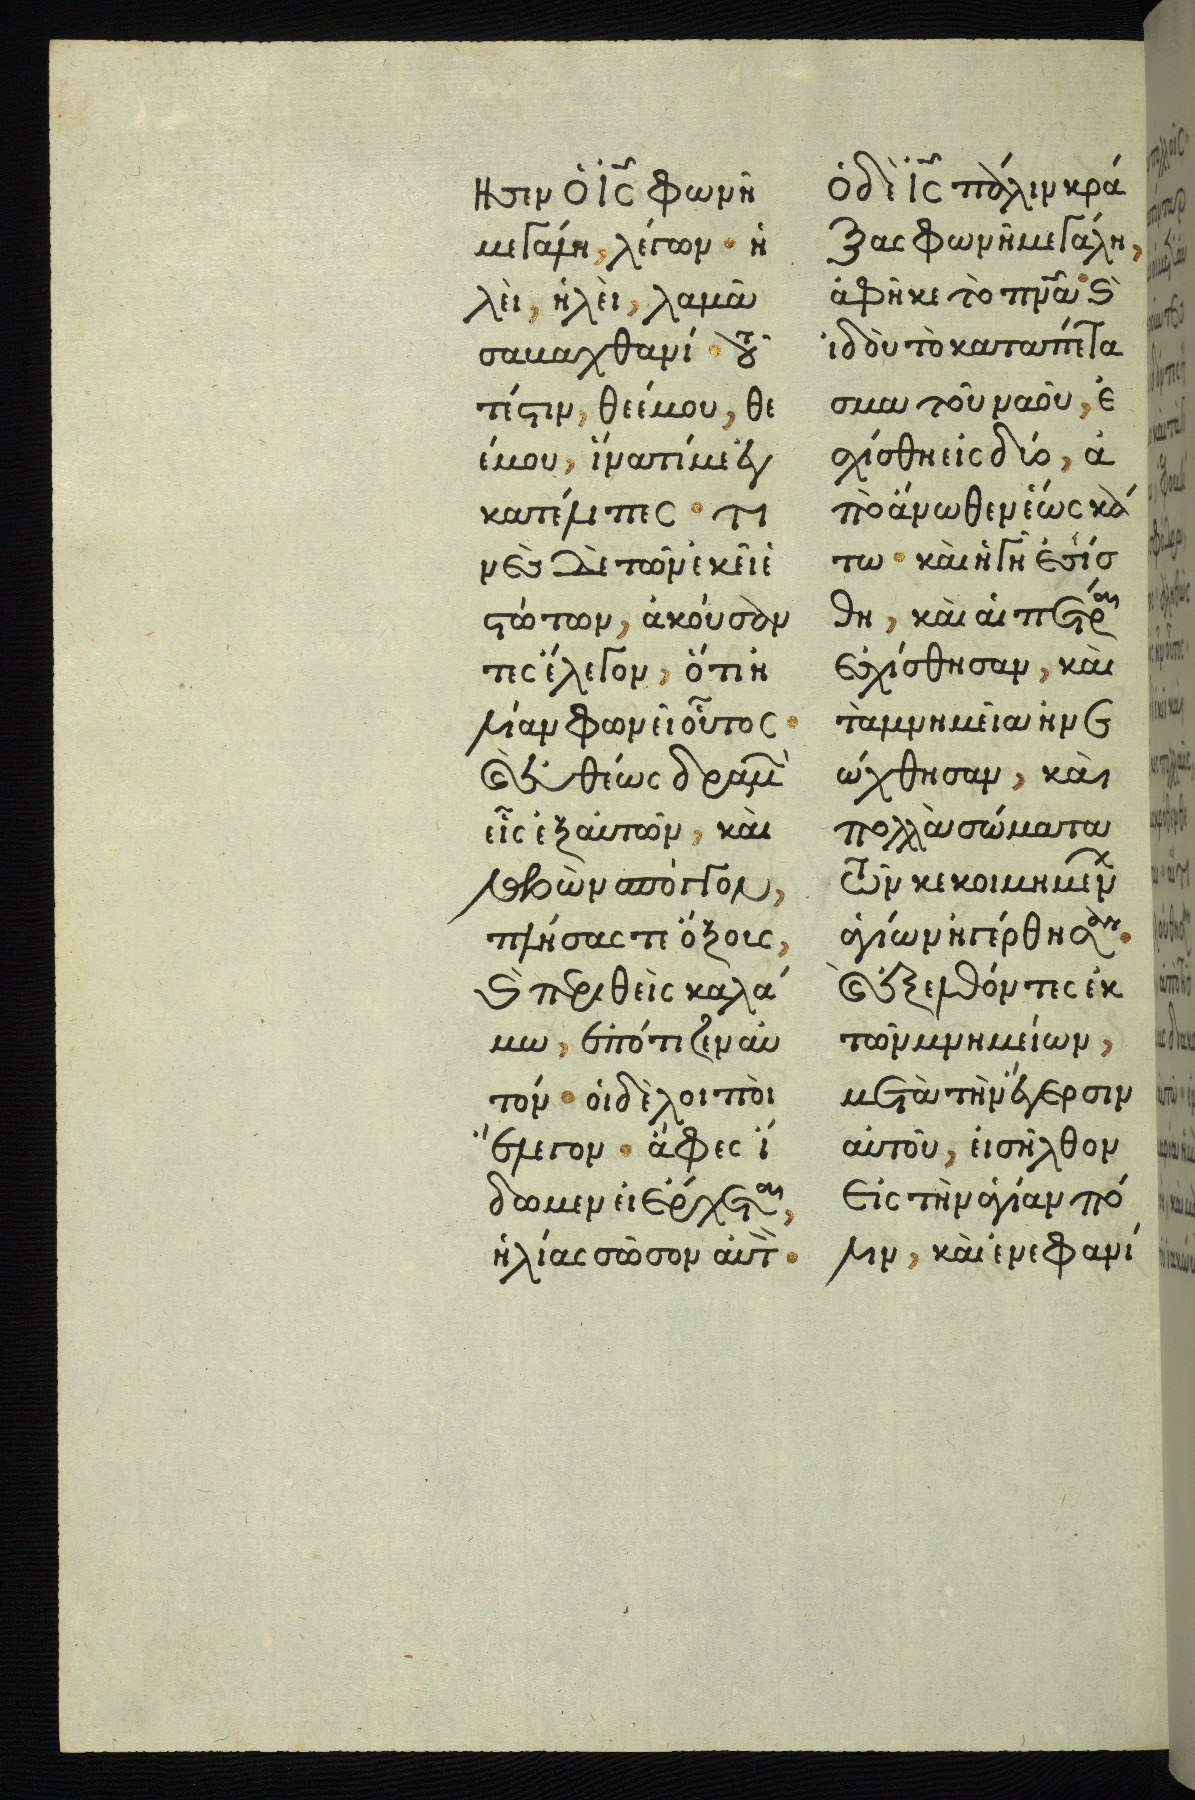 ησεν ὁ ἰς̃ φωνῆ
μεγάλη, λέγων· ἠ
λὲι, ἠλὲι, λαμᾶ
σαμαχθανί· του
τέστιν, θεέμου, θε
έμου, ἵνατίμε ἐγ
κατέλιπες· τι
νὲς δὲ τῶν ἐκεῖ ἑ
στώτων, ἀκούσαν
τες ἔλεγον, ὅτι ἠ
λίαν φωνεῖ οὗτος·
Καὶ ἐυθέως δραμὼν
εἷς ἐξ αὐτῶν, καὶ
λαβὼν σπόγγον,
πλήσας τε ὄξους,
καὶ περιθεὶς καλά
μω, ἐπότιζεν αὐ
τόν· οἱ δὲ λοιποὶ
ἔλεγον· ἄφες ἴ
δωμεν εἰ ἔρχεται,
ἠλίας σῶσον αὐτὸν·
ὁ δὲ ἰς̃ πάλιν κρά
ξας φωνῆ μεγάλη,
ἀφῆκε τὸ πνᾶ· καὶ
ἰδοὺ τὸ καταπέτα
σμα τοῦ ναοῦ, ἐ
σχίσθη εἰς δύο, ἀ
πὸ ἄνωθεν ἕως κά
τω· καὶ ἡ γῆ ἐσείσ
θη, καὶ αἱ πέτραι
ἐσχίσθησαν, καὶ
τὰ μνημεῖα ἠνε
ώχθησαν, καὶ
πολλὰ σώματα
τῶν κεκοιμημένων
ἁγίων ἠγέρθησαν·
Καὶ ἐξελθόντες ἐκ
τῶν μνημείων,
μετὰ τὴν ἔγερσιν
αὐτοῦ, εἰσῆλθον
εἰς τὴν ἁγίαν πό
λιν, καὶ ἐνεφανί